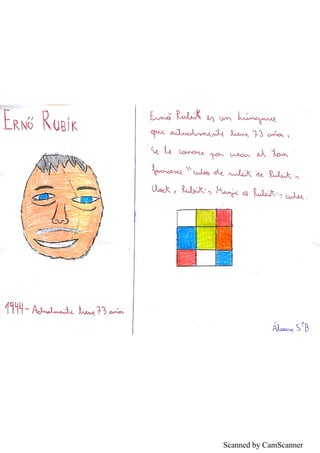 ERNŐ RUBIK
1944 - Actualmente tiene 73 años
Ernő Rubik es un húngaro
que actualmente tiene 73 años.
Se le conoce por crear el tan
famoso "cubo de rubik
Clock, Rubik's Magic
5ºB
Scanned by CamScanner